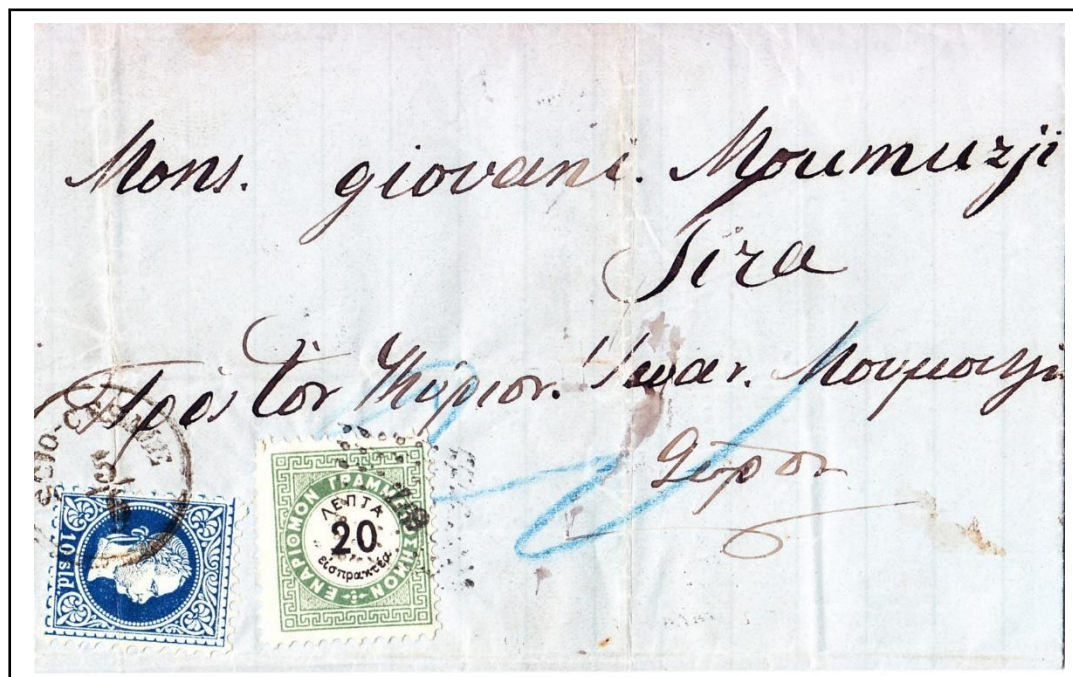 Mons. giovani. Moumuzji
Sira
Πρὸς τὸν Κύριον. Ἰωαν. Μουμουτζῆ
Σύρον
SCIO-CESME
10 sld.
ΕΝΑΡΙΘΜΟΝ ΓΡΑΜΜΑΤΟΣΗΜΟΝ
ΛΕΠΤΑ
20
εἰσπρακτέα